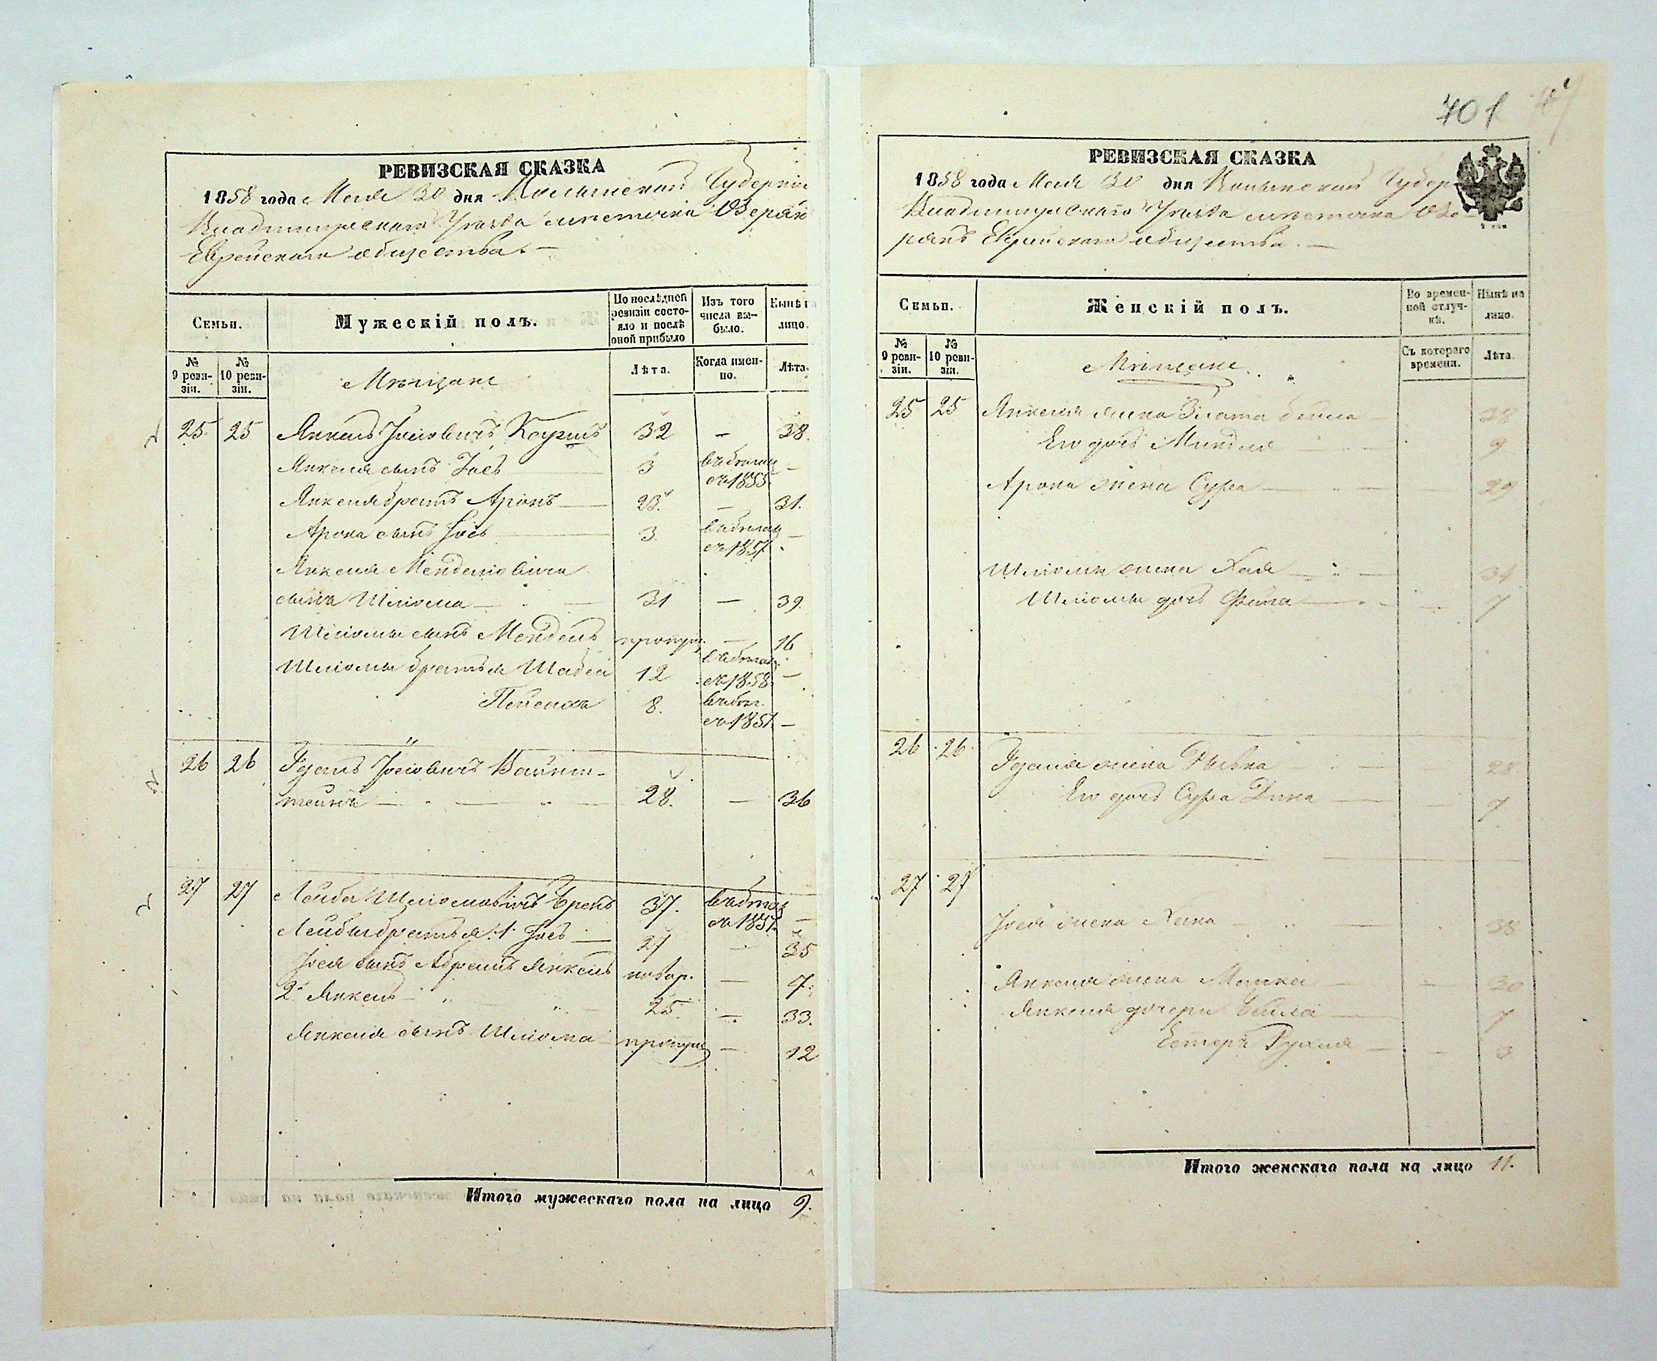 701
РЕВИЗСКАЯ СКАЗКА
1858 года Мая 30 дня Волынской Губерніи
Владимірскаго Уѣзда мѣстечка Озеря
Еврейскаго общества. —
Семьи.
Мужескій полъ.
По послѣдней ревизіи состояло и послѣ оной прибыло
Изъ того числа выбыло.
Нынѣ на лицо.
№ 9 ревизіи.
№ 10 ревизіи.
Мѣщане
Лѣта.
Когда именно.
Лѣта.
25 25 Янкель Іосіовичъ 32 — 38.
Янкеля сынъ Іось 3 въ 1855. —
Янкеля братъ Аронъ 23. — 31.
Арона сынъ Іось 3. 1857. —
Янкеля Менделіовича
сынъ Шліома 31 — 39.
Шліомы сынъ Мендель пропущ. — 16
Шліомы братья 12 1858. —
Пейсаха 8. 185 —
26 26 Іосіовичъ Вайнш-
тейнъ 28. — 36
27 27 Лейба Шліомовичъ 37. 185 —
Лейбы братья: 1 Іось 27 — 35
Іося сынъ Абрамъ Янкель новор. — 7.
2й Янкель 25. — 33.
Янкеля сынъ Шліома пропущ — 12
Итого мужескаго пола на лицо 9.
РЕВИЗСКАЯ СКАЗКА
1858 года Мая 30 дня Волынской Губер
Владимірскаго Уѣзда мѣстечка Озе
рянъ Еврейскаго общества. —
Семьи.
Женскій полъ.
Во временной отлучкѣ.
Нынѣ на лицо.
№ 9 ревизіи.
№ 10 ревизіи.
Мѣщане
Съ котораго времени.
Лѣта.
25 25 Янкеля жена Злата Бейла 38
Его дочь Миндля 9
Арона жена Сура 29
Шліомы жена Хая 34
Шліомы дочь 7
26 26 жена Рывка 28
Его дочь Сура Дина 7
27 27
Іося жена Хана 38
Янкеля жена 30
Янкеля дочери Бейла 7
Естеръ Рухля
Итого женскаго пола на лицо 11.